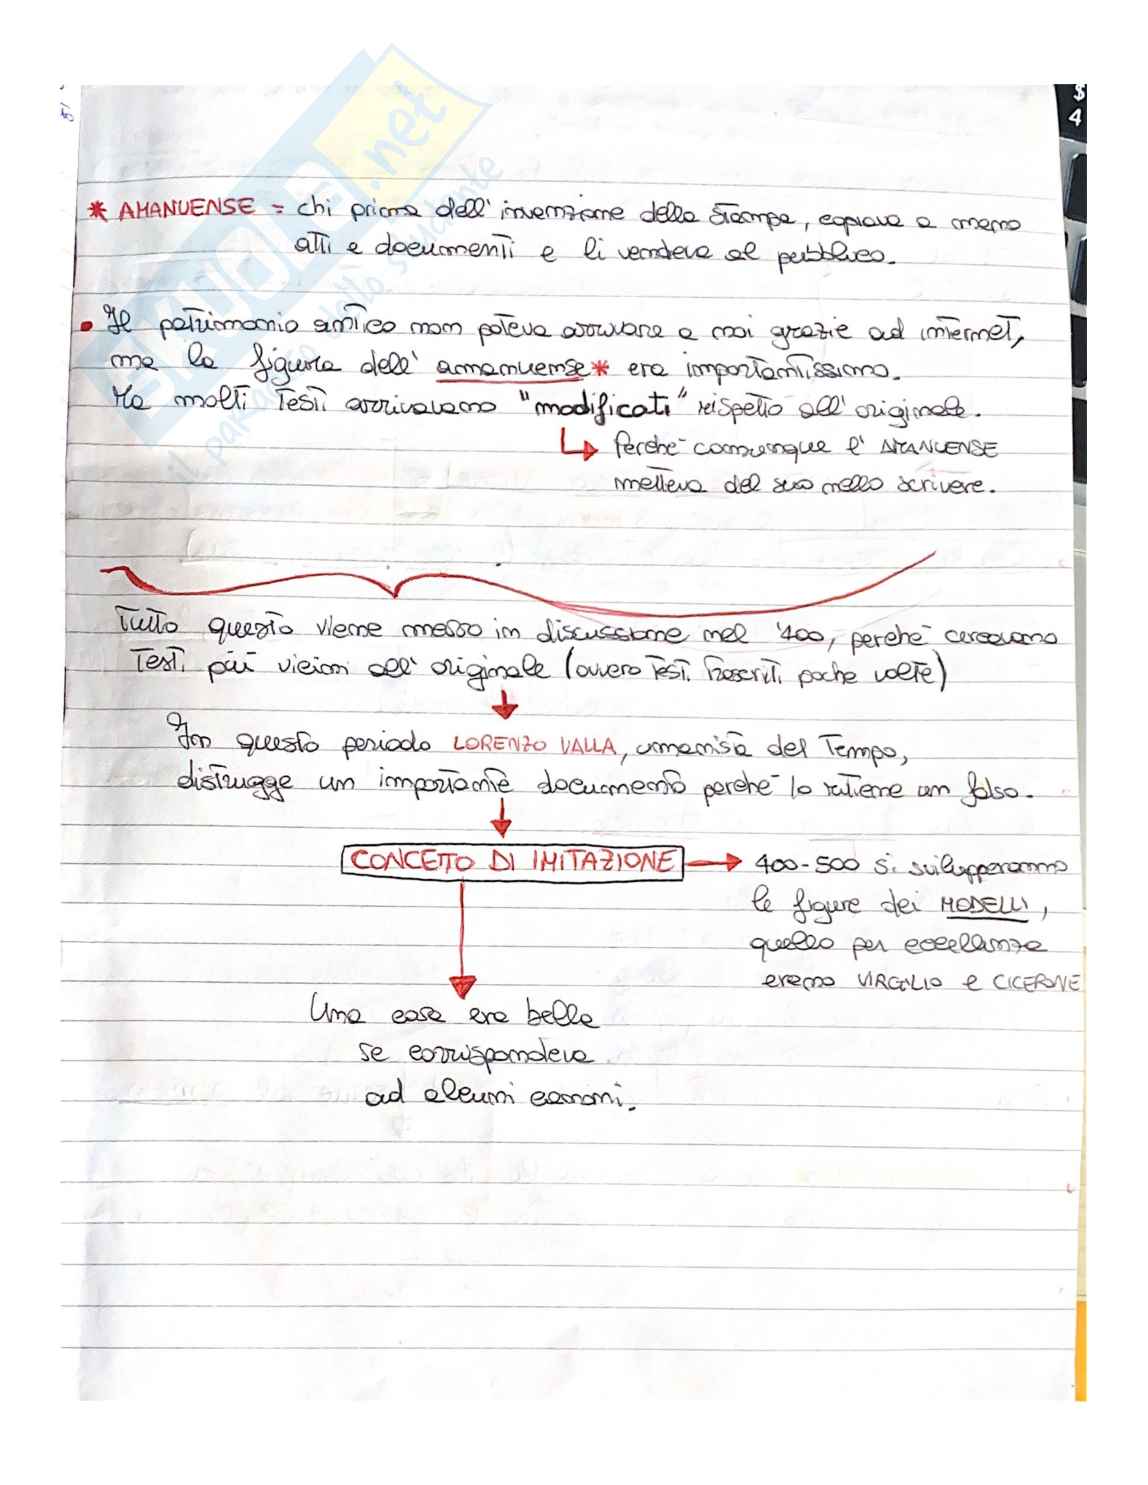 $
4
SKUOLA.net
il paradiso dello studente
* AMANUENSE = chi prima dell'invenzione della stampa, copiava a mano
atti e documenti e li vendeva al pubblico.
• Il patrimonio antico non poteva arrivare a noi grazie ad internet,
ma la figura dell'amanuense* era importantissima.
Ma molti testi arrivavano "modificati" rispetto all'originale.
↳ Perché comunque l'AMANUENSE
metteva del suo nello scrivere.
Tutto questo viene messo in discussione nel '400, perché cercavano
testi più vicini all'originale (ovvero testi trascritti poche volte)
In questo periodo LORENZO VALLA, umanista del tempo,
distrugge un importante documento perché lo ritiene un falso.
CONCETTO DI IMITAZIONE → 400-500 si svilupperanno
le figure dei MODELLI,
quello per eccellenza
erano VIRGILIO e CICERONE
Una cosa era bella
se corrispondeva
ad alcuni canoni.